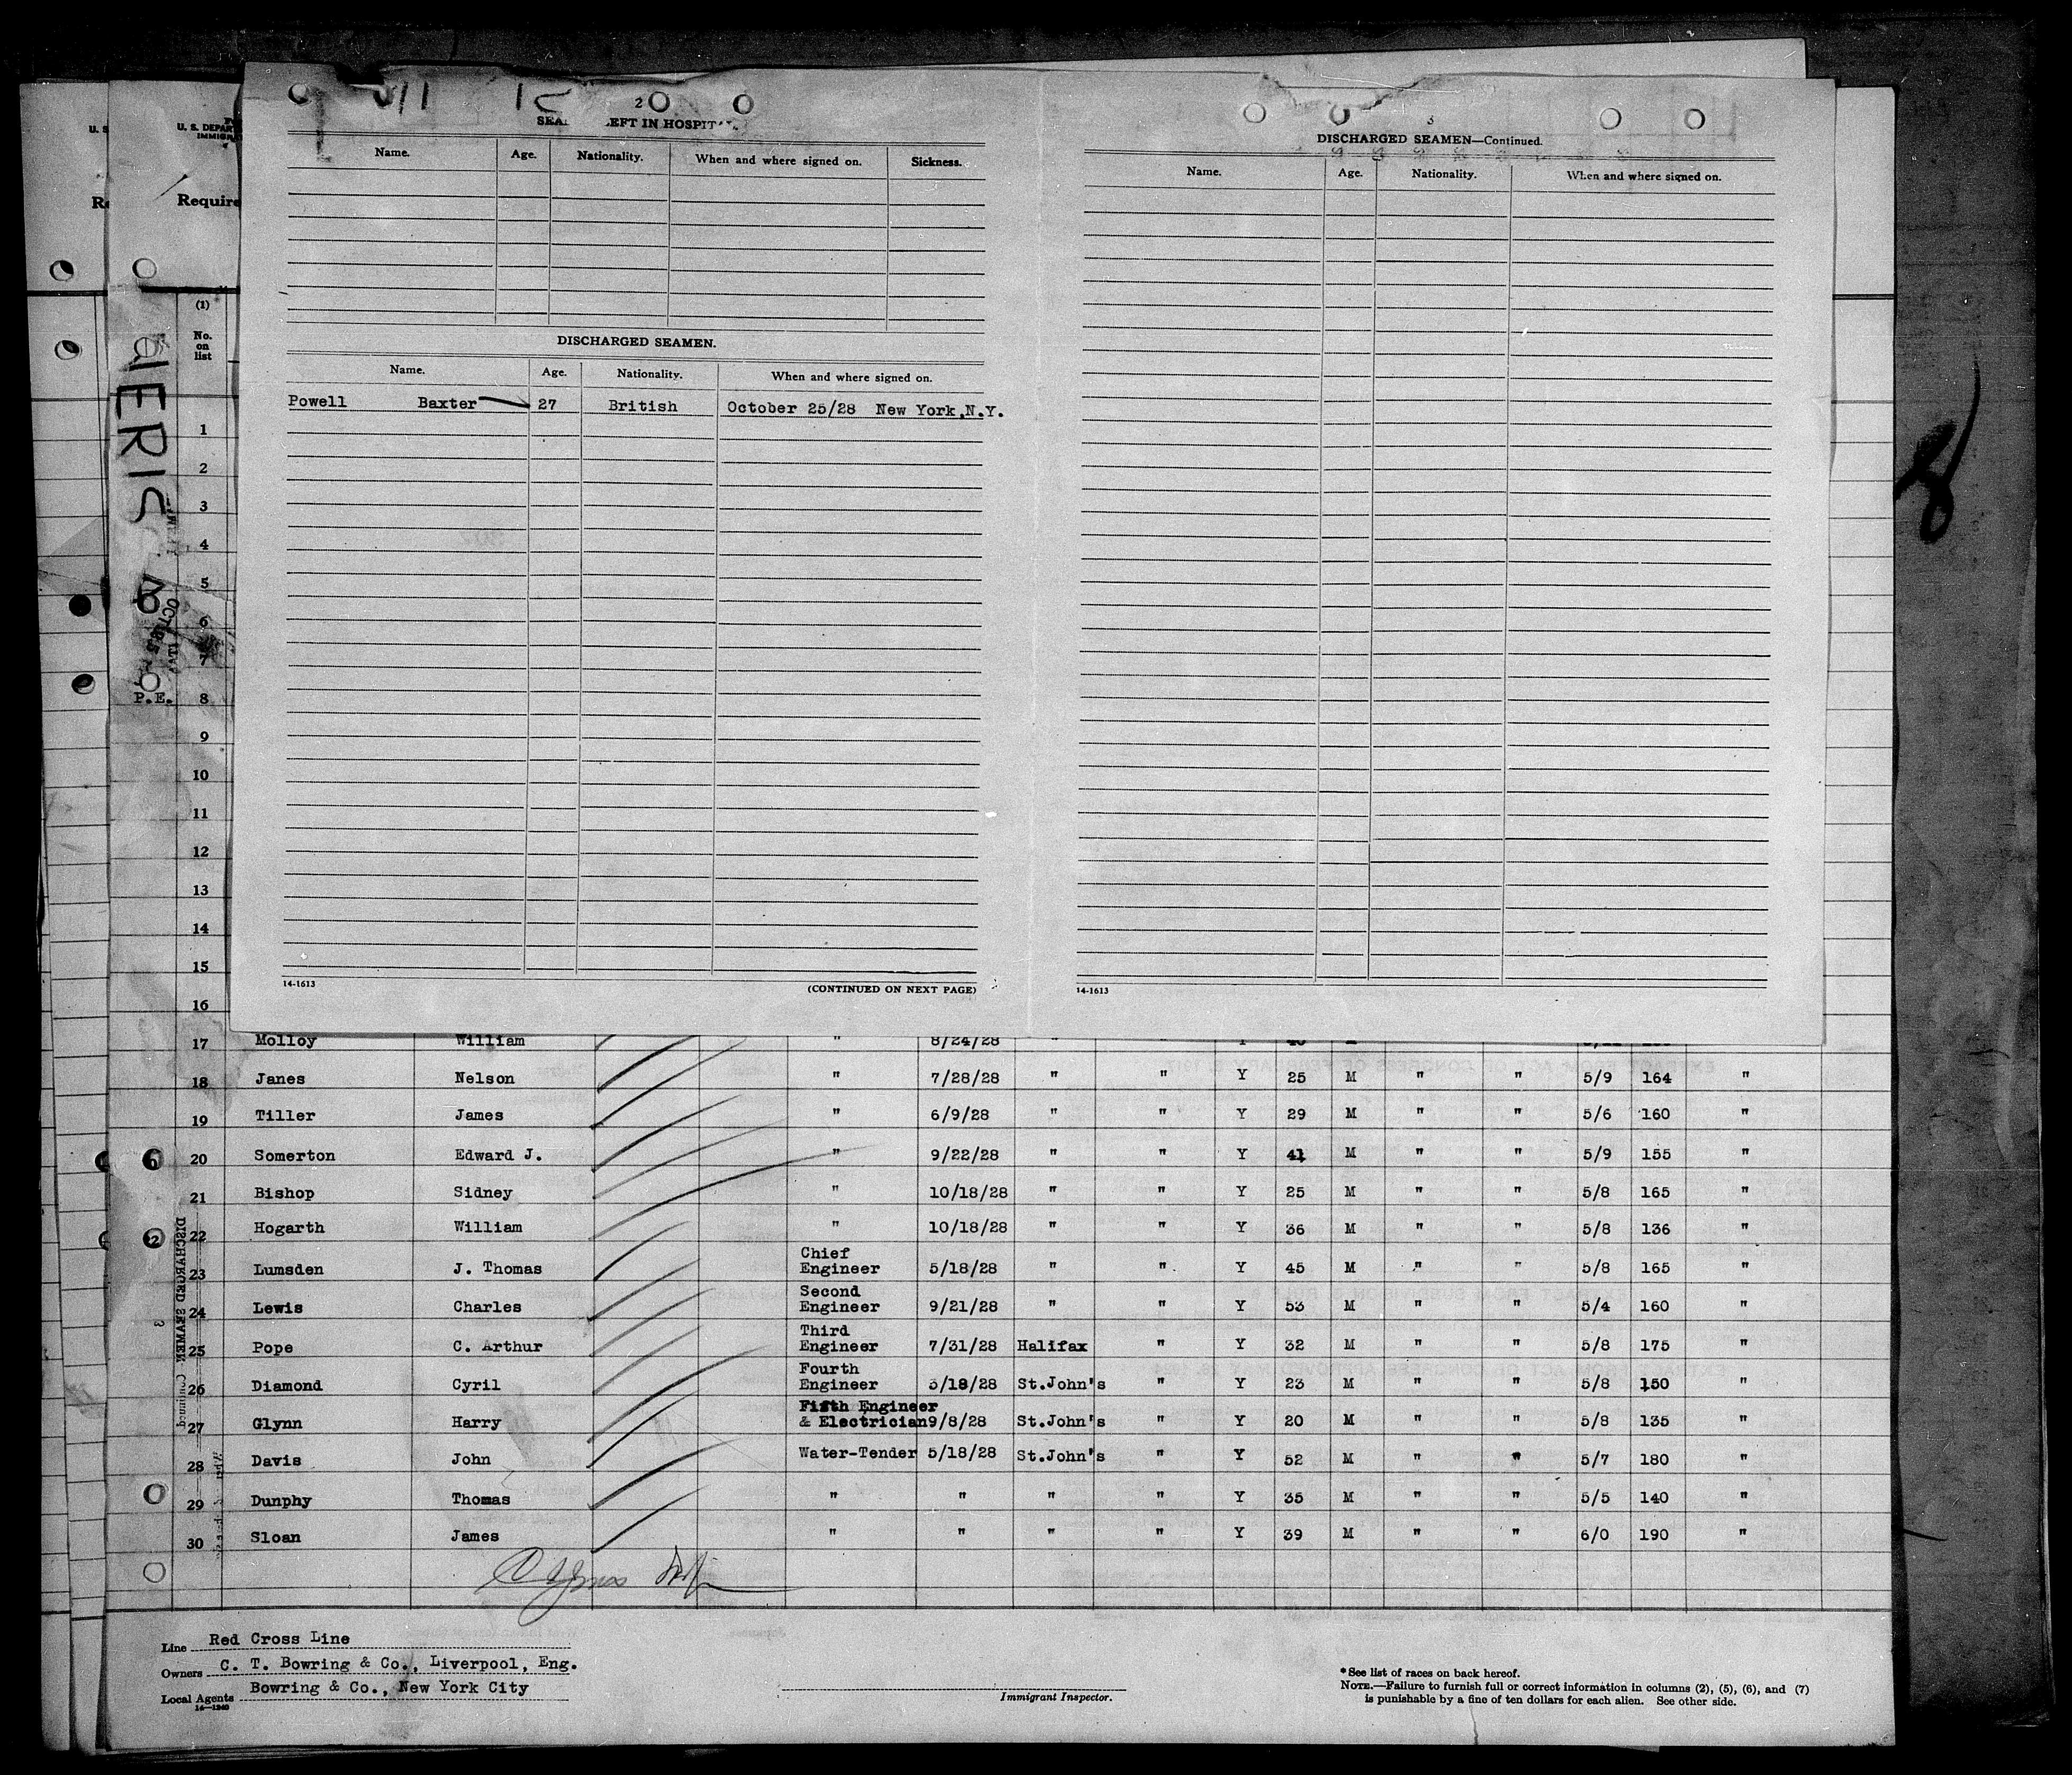 2
LEFT IN HOSPITAL
Name. Age. Nationality. When and where signed on. Sickness.
DISCHARGED SEAMEN.
Name. Age. Nationality. When and where signed on.
Powell Baxter 27 British October 25/28 New York,N.Y.
14-1613
(CONTINUED ON NEXT PAGE)
3
DISCHARGED SEAMEN—Continued.
Name. Age. Nationality. When and where signed on.
14-1613
U. S.
U. S. DEPAR
IMMIGRA
Require
(1)
No.
on
list
1
2
3
4
5
6
7
P.E. 8
9
10
11
12
13
14
15
16
17 Molloy William " 8/24/28
18 Janes Nelson " 7/28/28 " " Y 25 M " " 5/9 164 "
19 Tiller James " 6/9/28 " " Y 29 M " " 5/6 160 "
20 Somerton Edward J. " 9/22/28 " " Y 41 M " " 5/9 155 "
21 Bishop Sidney " 10/18/28 " " Y 25 M " " 5/8 165 "
22 Hogarth William " 10/18/28 " " Y 36 M " " 5/8 136 "
23 Lumsden J. Thomas Chief Engineer 5/18/28 " " Y 45 M " " 5/8 165 "
24 Lewis Charles Second Engineer 9/21/28 " " Y 53 M " " 5/4 160 "
25 Pope C. Arthur Third Engineer 7/31/28 Halifax " Y 32 M " " 5/8 175 "
26 Diamond Cyril Fourth Engineer 5/18/28 St.John's " Y 23 M " " 5/8 150 "
27 Glynn Harry Fifth Engineer & Electrician 9/8/28 St.John's " Y 20 M " " 5/8 135 "
28 Davis John Water-Tender 5/18/28 St.John's " Y 52 M " " 5/7 180 "
29 Dunphy Thomas " " " " Y 35 M " " 5/5 140 "
30 Sloan James " " " " Y 39 M " " 6/0 190 "
DISCHARGED SEAMEN Continued
Line Red Cross Line
Owners C. T. Bowring & Co., Liverpool, Eng.
Local Agents Bowring & Co., New York City
14—1240
Immigrant Inspector.
*See list of races on back hereof.
NOTE.—Failure to furnish full or correct information in columns (2), (5), (6), and (7)
is punishable by a fine of ten dollars for each alien. See other side.
8